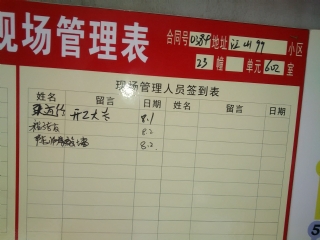 现场管理表
合同号0384地址江山97小区
23幢 单元602室
现场管理人员签到表
姓名 留言 日期 姓名 留言 日期
开工大吉 8.1
8.2
8.2